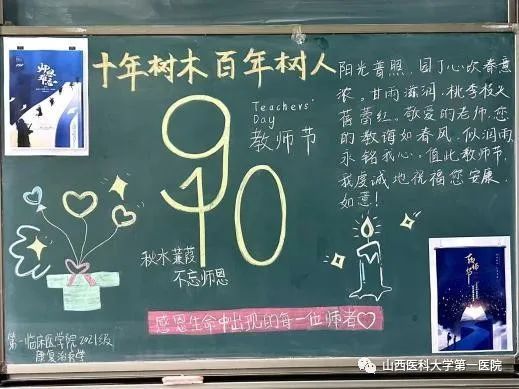 十年树木 百年树人
9
10
Teachers'
Day
教师节
秋水蒹葭
不忘师恩
阳光普照，园丁心坎春意
浓。甘雨滋润，桃李枝头
蓓蕾红。敬爱的老师，您
的教诲如春风，似润雨
永铭我心，值此教师节，
我虔诚地祝福您安康，
如意！
感恩生命中出现的每一位师者
第一临床医学院2021级
康复治疗学
山西医科大学第一医院